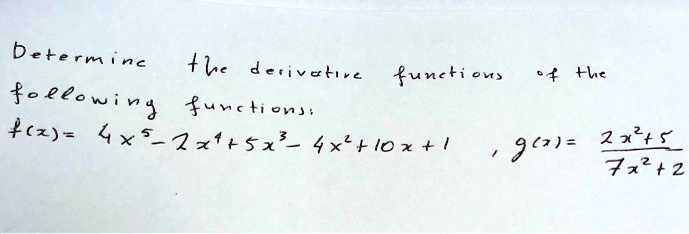 Determine the derivative functions of the
following functions:
f(x)= 4x⁵-2x⁴+5x³-4x²+10x+1 , g(x)= (2x²+5)/(7x²+2)